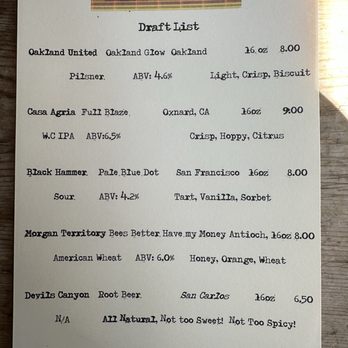 Draft List
Oakland United Oakland Glow Oakland 16 oz 8.00
Pilsner ABV: 4.6% Light, Crisp, Biscuit
Casa Agria Full Blaze Oxnard, CA 16oz 9:00
W.C IPA ABV:6.5% Crisp, Hoppy, Citrus
Black Hammer Pale Blue Dot San Francisco 16oz 8.00
Sour ABV: 4.2% Tart, Vanilla, Sorbet
Morgan Territory Bees Better Have my Money Antioch, 16oz 8.00
American Wheat ABV: 6.0% Honey, Orange, Wheat
Devils Canyon Root Beer San Carlos 16oz 6.50
N/A All Natural, Not too Sweet! Not Too Spicy!